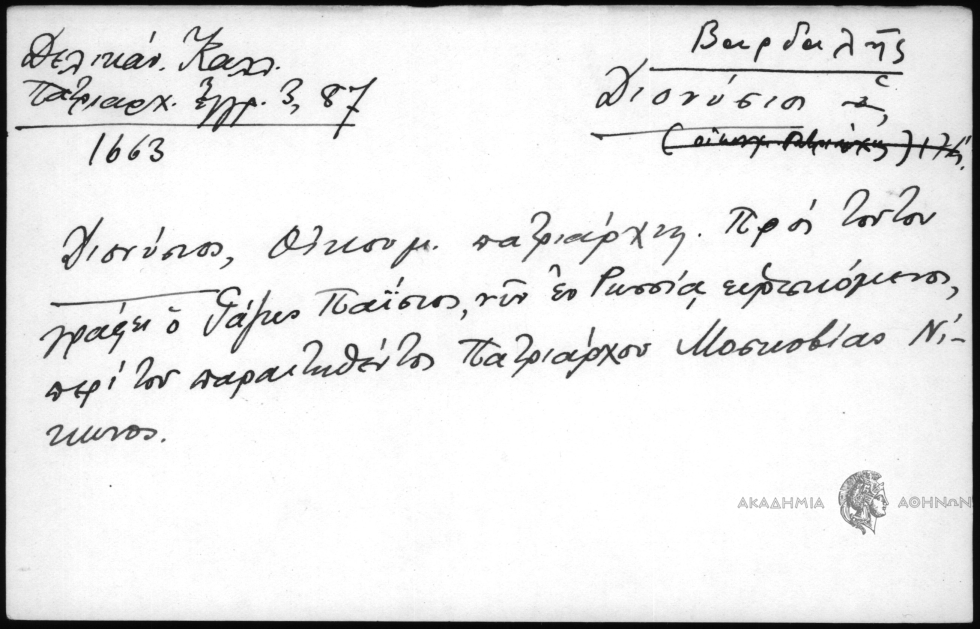 Δελικάν. Καλλ.
Πατριαρχ. ἔγγρ. 3, 87
1663
Βαρδαλῆς
Διονύσιος
Διονύσιος, Οἰκουμ. πατριάρχης. Πρὸς τοῦτον
γράφει ὁ Γάζης Παΐσιος, νῦν ἐν Ρωσσίᾳ εὑρισκόμενος,
περὶ τοῦ παραιτηθέντος Πατριάρχου Μοσκοβίας Νί-
κωνος.
ΑΚΑΔΗΜΙΑ ΑΘΗΝΩΝ